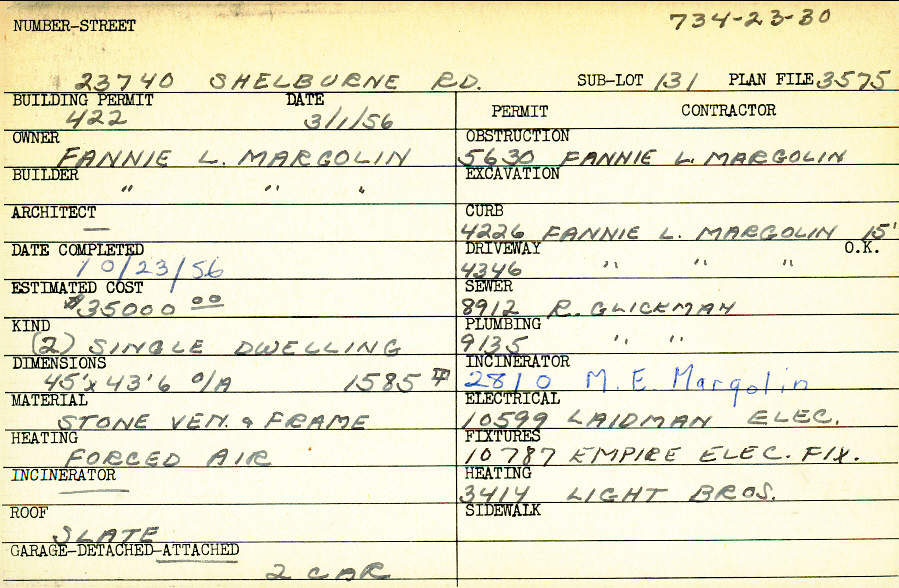 NUMBER-STREET 734-23-30
23740 SHELBURNE RD. SUB-LOT 131 PLAN FILE 3575
BUILDING PERMIT DATE
422 3/1/56
OWNER
FANNIE L. MARGOLIN
BUILDER
" " "
ARCHITECT
—
DATE COMPLETED
10/23/56
ESTIMATED COST
$35000 00
KIND
(2) SINGLE DWELLING
DIMENSIONS
45'x 43'6 O/A 1585
MATERIAL
STONE VEN. & FRAME
HEATING
FORCED AIR
INCINERATOR
ROOF
SLATE
GARAGE-DETACHED-ATTACHED
2 CAR
PERMIT CONTRACTOR
OBSTRUCTION
5630 FANNIE L. MARGOLIN
EXCAVATION
CURB
4226 FANNIE L. MARGOLIN 15'
DRIVEWAY O.K.
4346 " " "
SEWER
8912 R. GLICKMAN
PLUMBING
9135 " "
INCINERATOR
2810 M. E. Margolin
ELECTRICAL
10599 LAIDMAN ELEC.
FIXTURES
10787 EMPIRE ELEC. FIX.
HEATING
3414 LIGHT BROS.
SIDEWALK